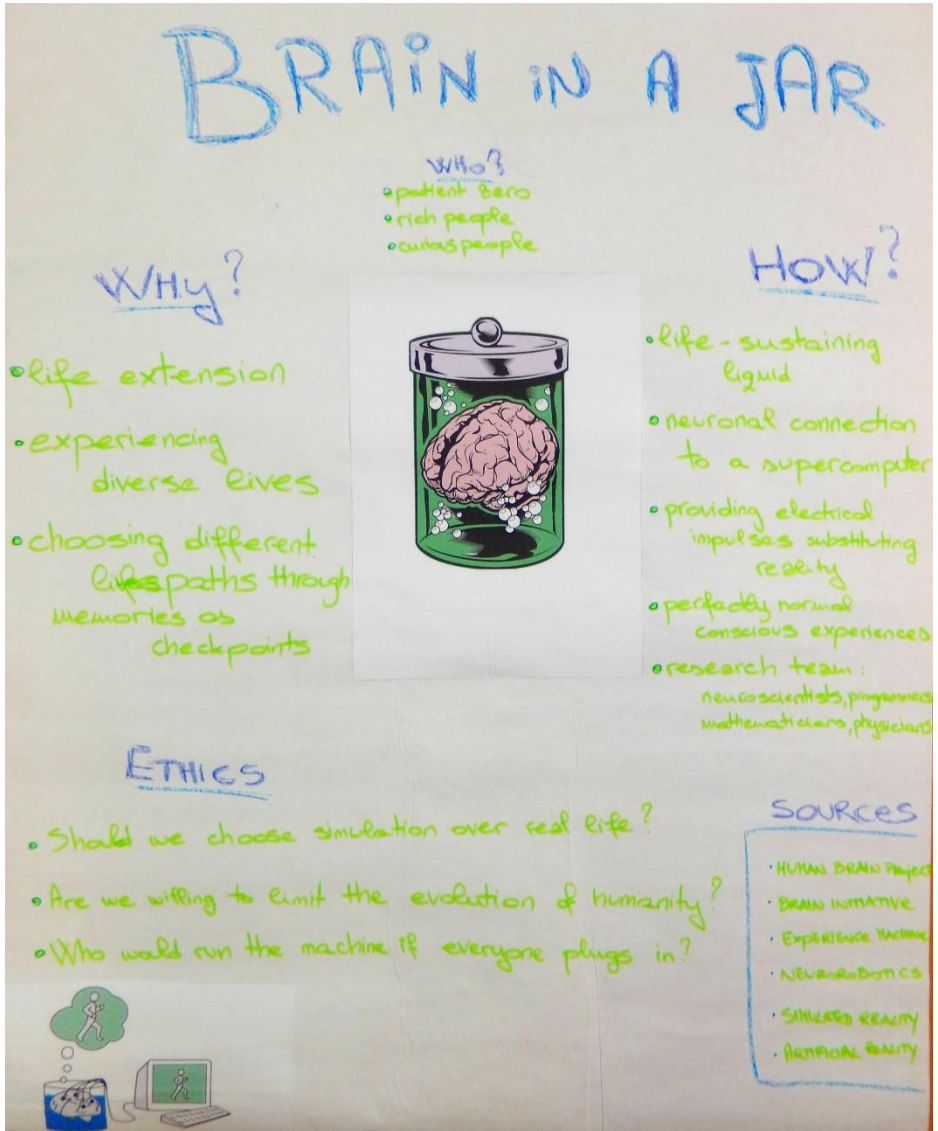 BRAIN IN A JAR
WHO?
• patient zero
• rich people
• curious people
WHY?
• life extension
• experiencing
diverse lives
• choosing different
lifes paths through
memories as
checkpoints
HOW?
• life-sustaining
liquid
• neuronal connection
to a supercomputer
• providing electrical
impulses substituting
reality
• perfectly normal
conscious experiences
• research team:
neuroscientists, programmers
mathematicians, physicians
ETHICS
• Should we choose simulation over real life?
• Are we willing to limit the evolution of humanity?
• Who would run the machine if everyone plugs in?
SOURCES
• HUMAN BRAIN PROJECT
• BRAIN INITIATIVE
• EXPERIENCE MACHINE
• NEUROROBOTICS
• SIMULATED REALITY
• ARTIFICIAL REALITY